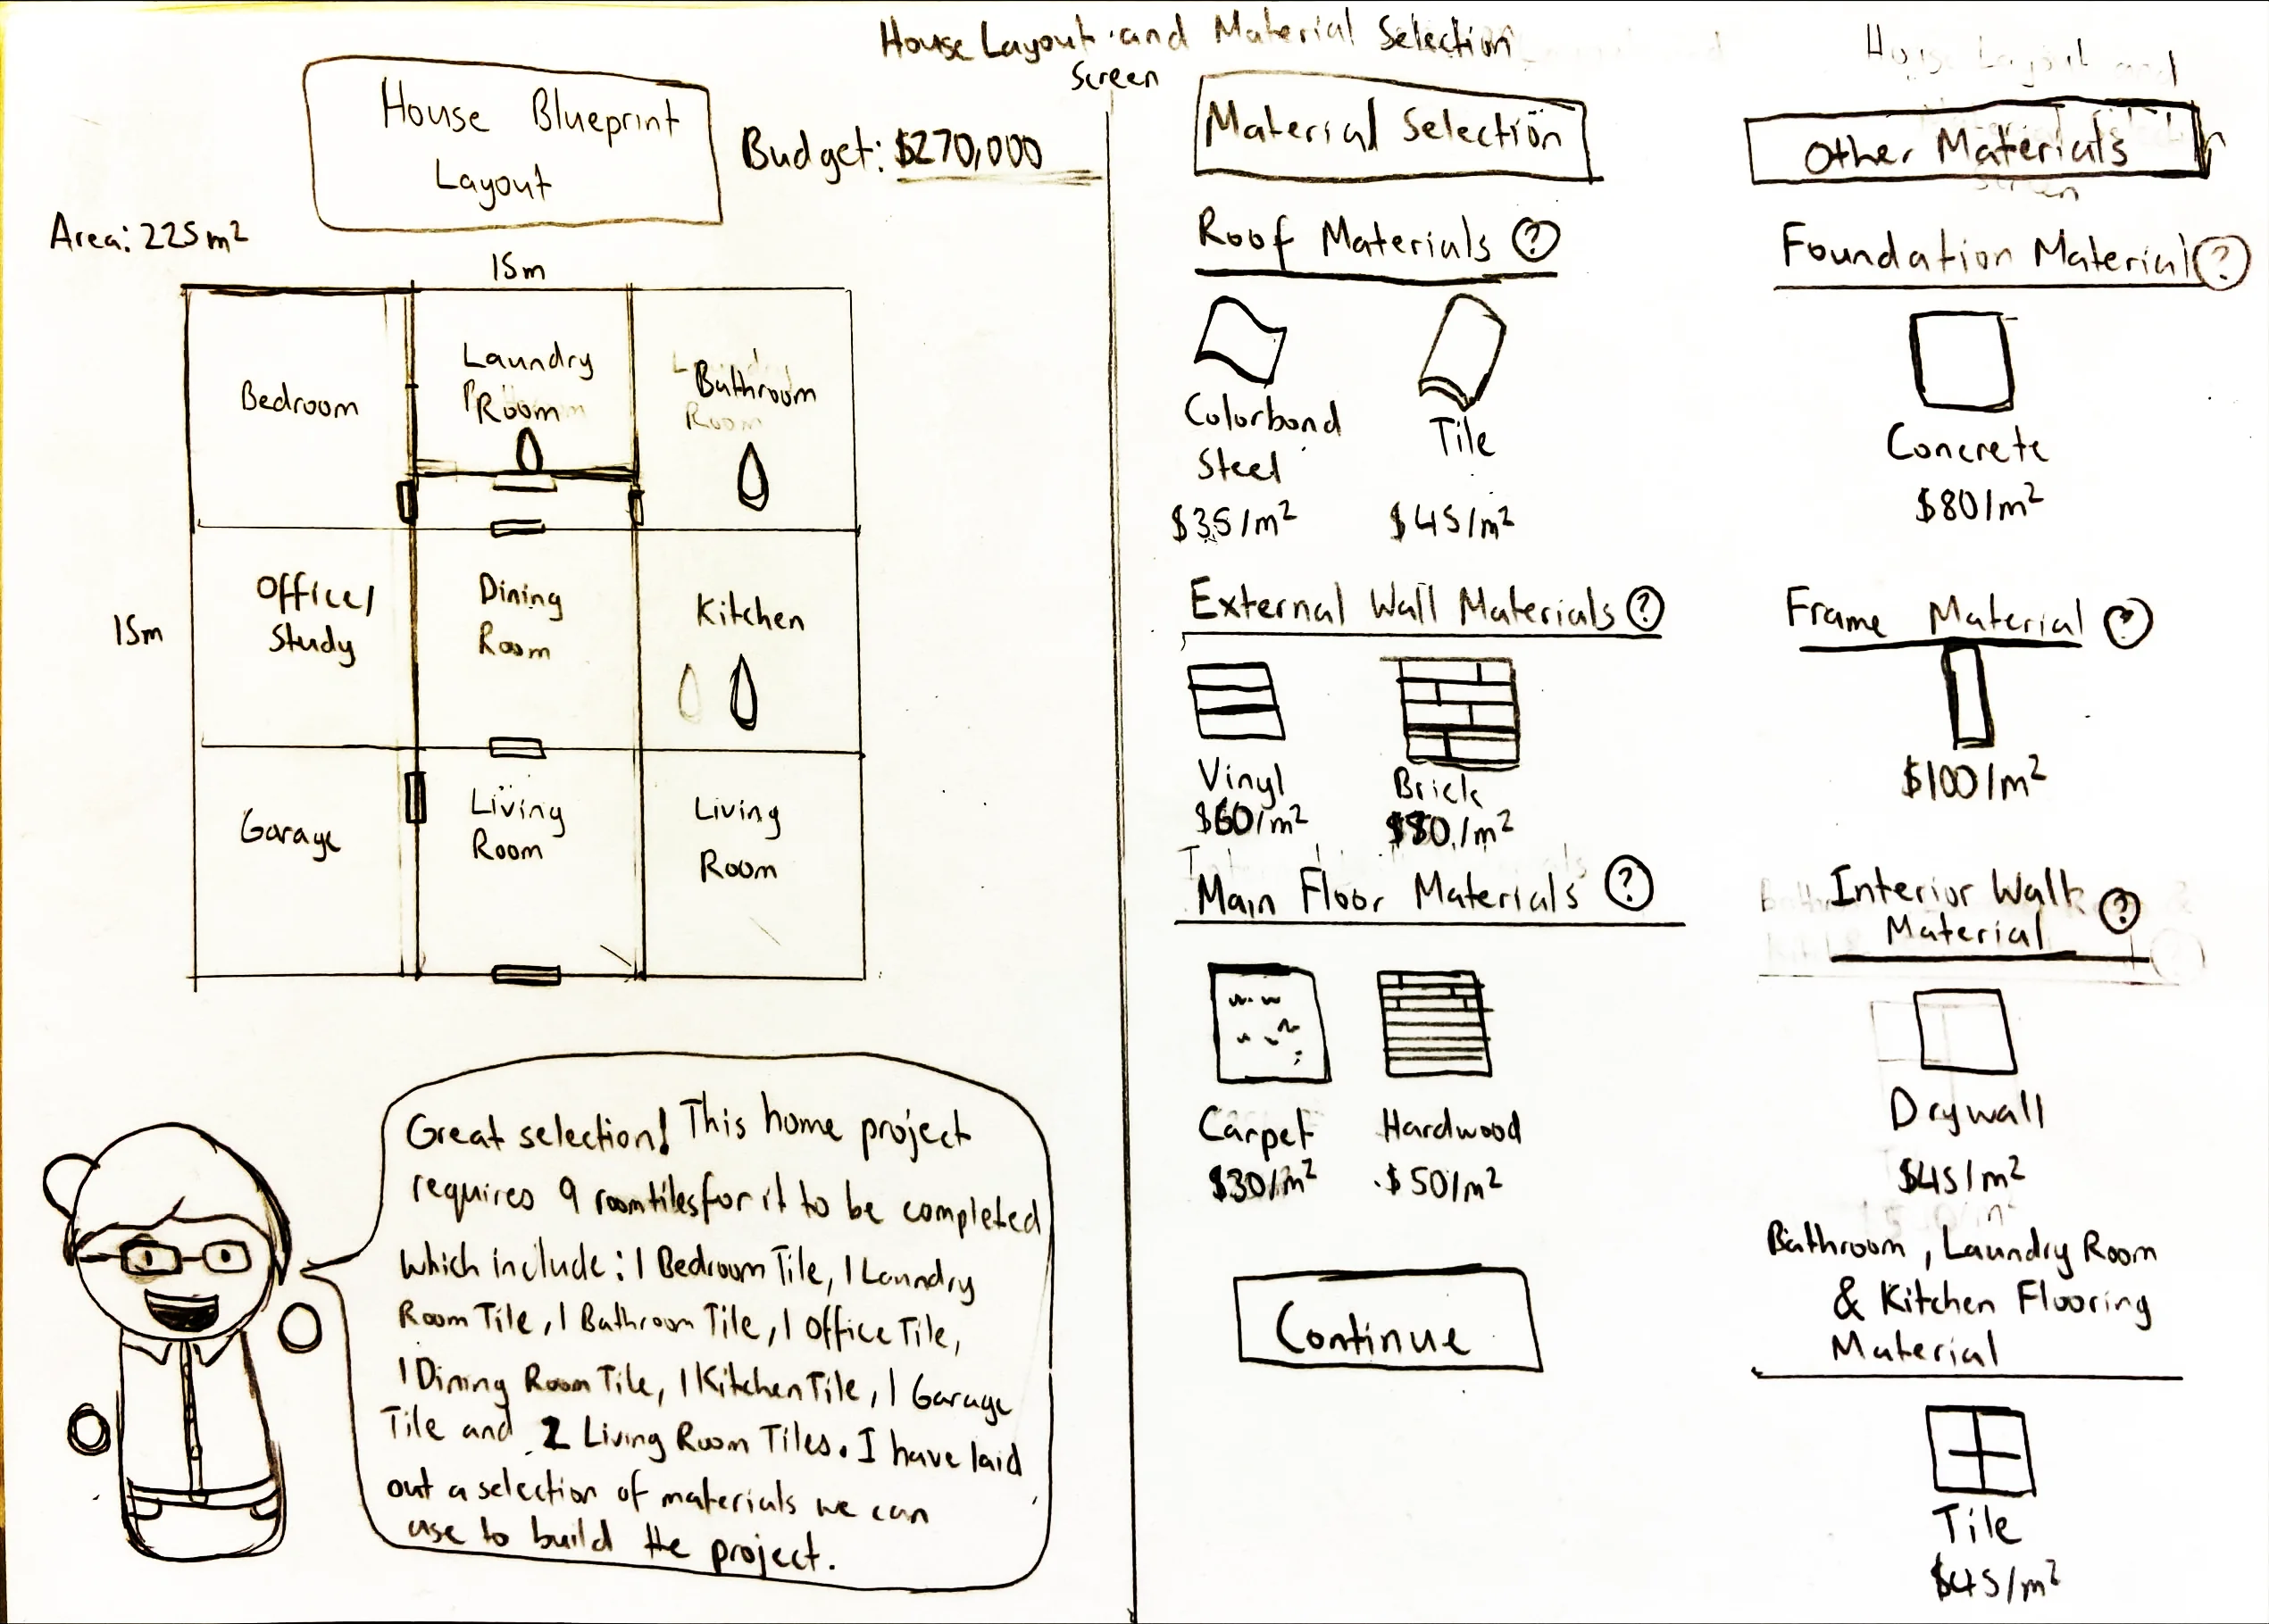 House Layout and Material Selection
Screen
House Blueprint
Layout
Budget: $270,000
Area: 225m²
15m
15m
Bedroom
Laundry
Room
Bathroom
Office/
Study
Dining
Room
Kitchen
Garage
Living
Room
Living
Room
Great selection! This home project
requires 9 room tiles for it to be completed
which include: 1 Bedroom Tile, 1 Laundry
Room Tile, 1 Bathroom Tile, 1 Office Tile,
1 Dining Room Tile, 1 Kitchen Tile, 1 Garage
Tile and 2 Living Room Tiles. I have laid
out a selection of materials we can
use to build the project.
Material Selection
Roof Materials ?
Colorbond
Steel
$35/m²
Tile
$45/m²
External Wall Materials ?
Vinyl
$60/m²
Brick
$80/m²
Main Floor Materials ?
Carpet
$30/m²
Hardwood
$50/m²
Continue
Other Materials
Foundation Material ?
Concrete
$80/m²
Frame Material ?
$100/m²
Interior Wall
Material ?
Drywall
$45/m²
Bathroom, Laundry Room
& Kitchen Flooring
Material
Tile
$45/m²